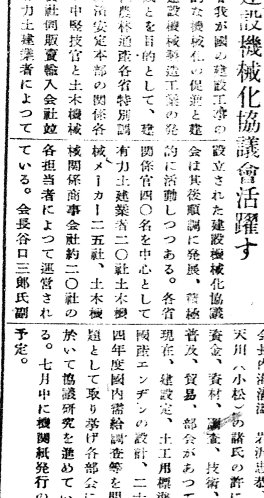 建設機械化協議會活躍す
我が國の建設工事の
的な機械化の促進と建
設機械製造工業の発
を目的として、建
農林逓產各省特別調
済安定本部の関係各
中堅技官と土木機械
社飼販賣輸入会社竝
力土建業者によつて
設立された建設機械化協議
会は其後順調に発展、積極
的に活動しつつある。各省
関係官四〇名を中心として
有力土建業者二〇社土木機
械メーカー二五社、土木機
械関係商事会社約二〇社の
各担当者によつて運営され
ている。会長谷口三郎氏副
会長内海清温
天川、小松の諸氏の許に
資金、資材、調査、技術、
普及、貿易、部会があつて
現在、建設定、土工用標準
國產エンヂンの設計、二十
四年度國内需給調查等を問
題として取り挙げ各部会に
於いて協議研究を進めてい
る。七月中に機関紙発行の
予定。